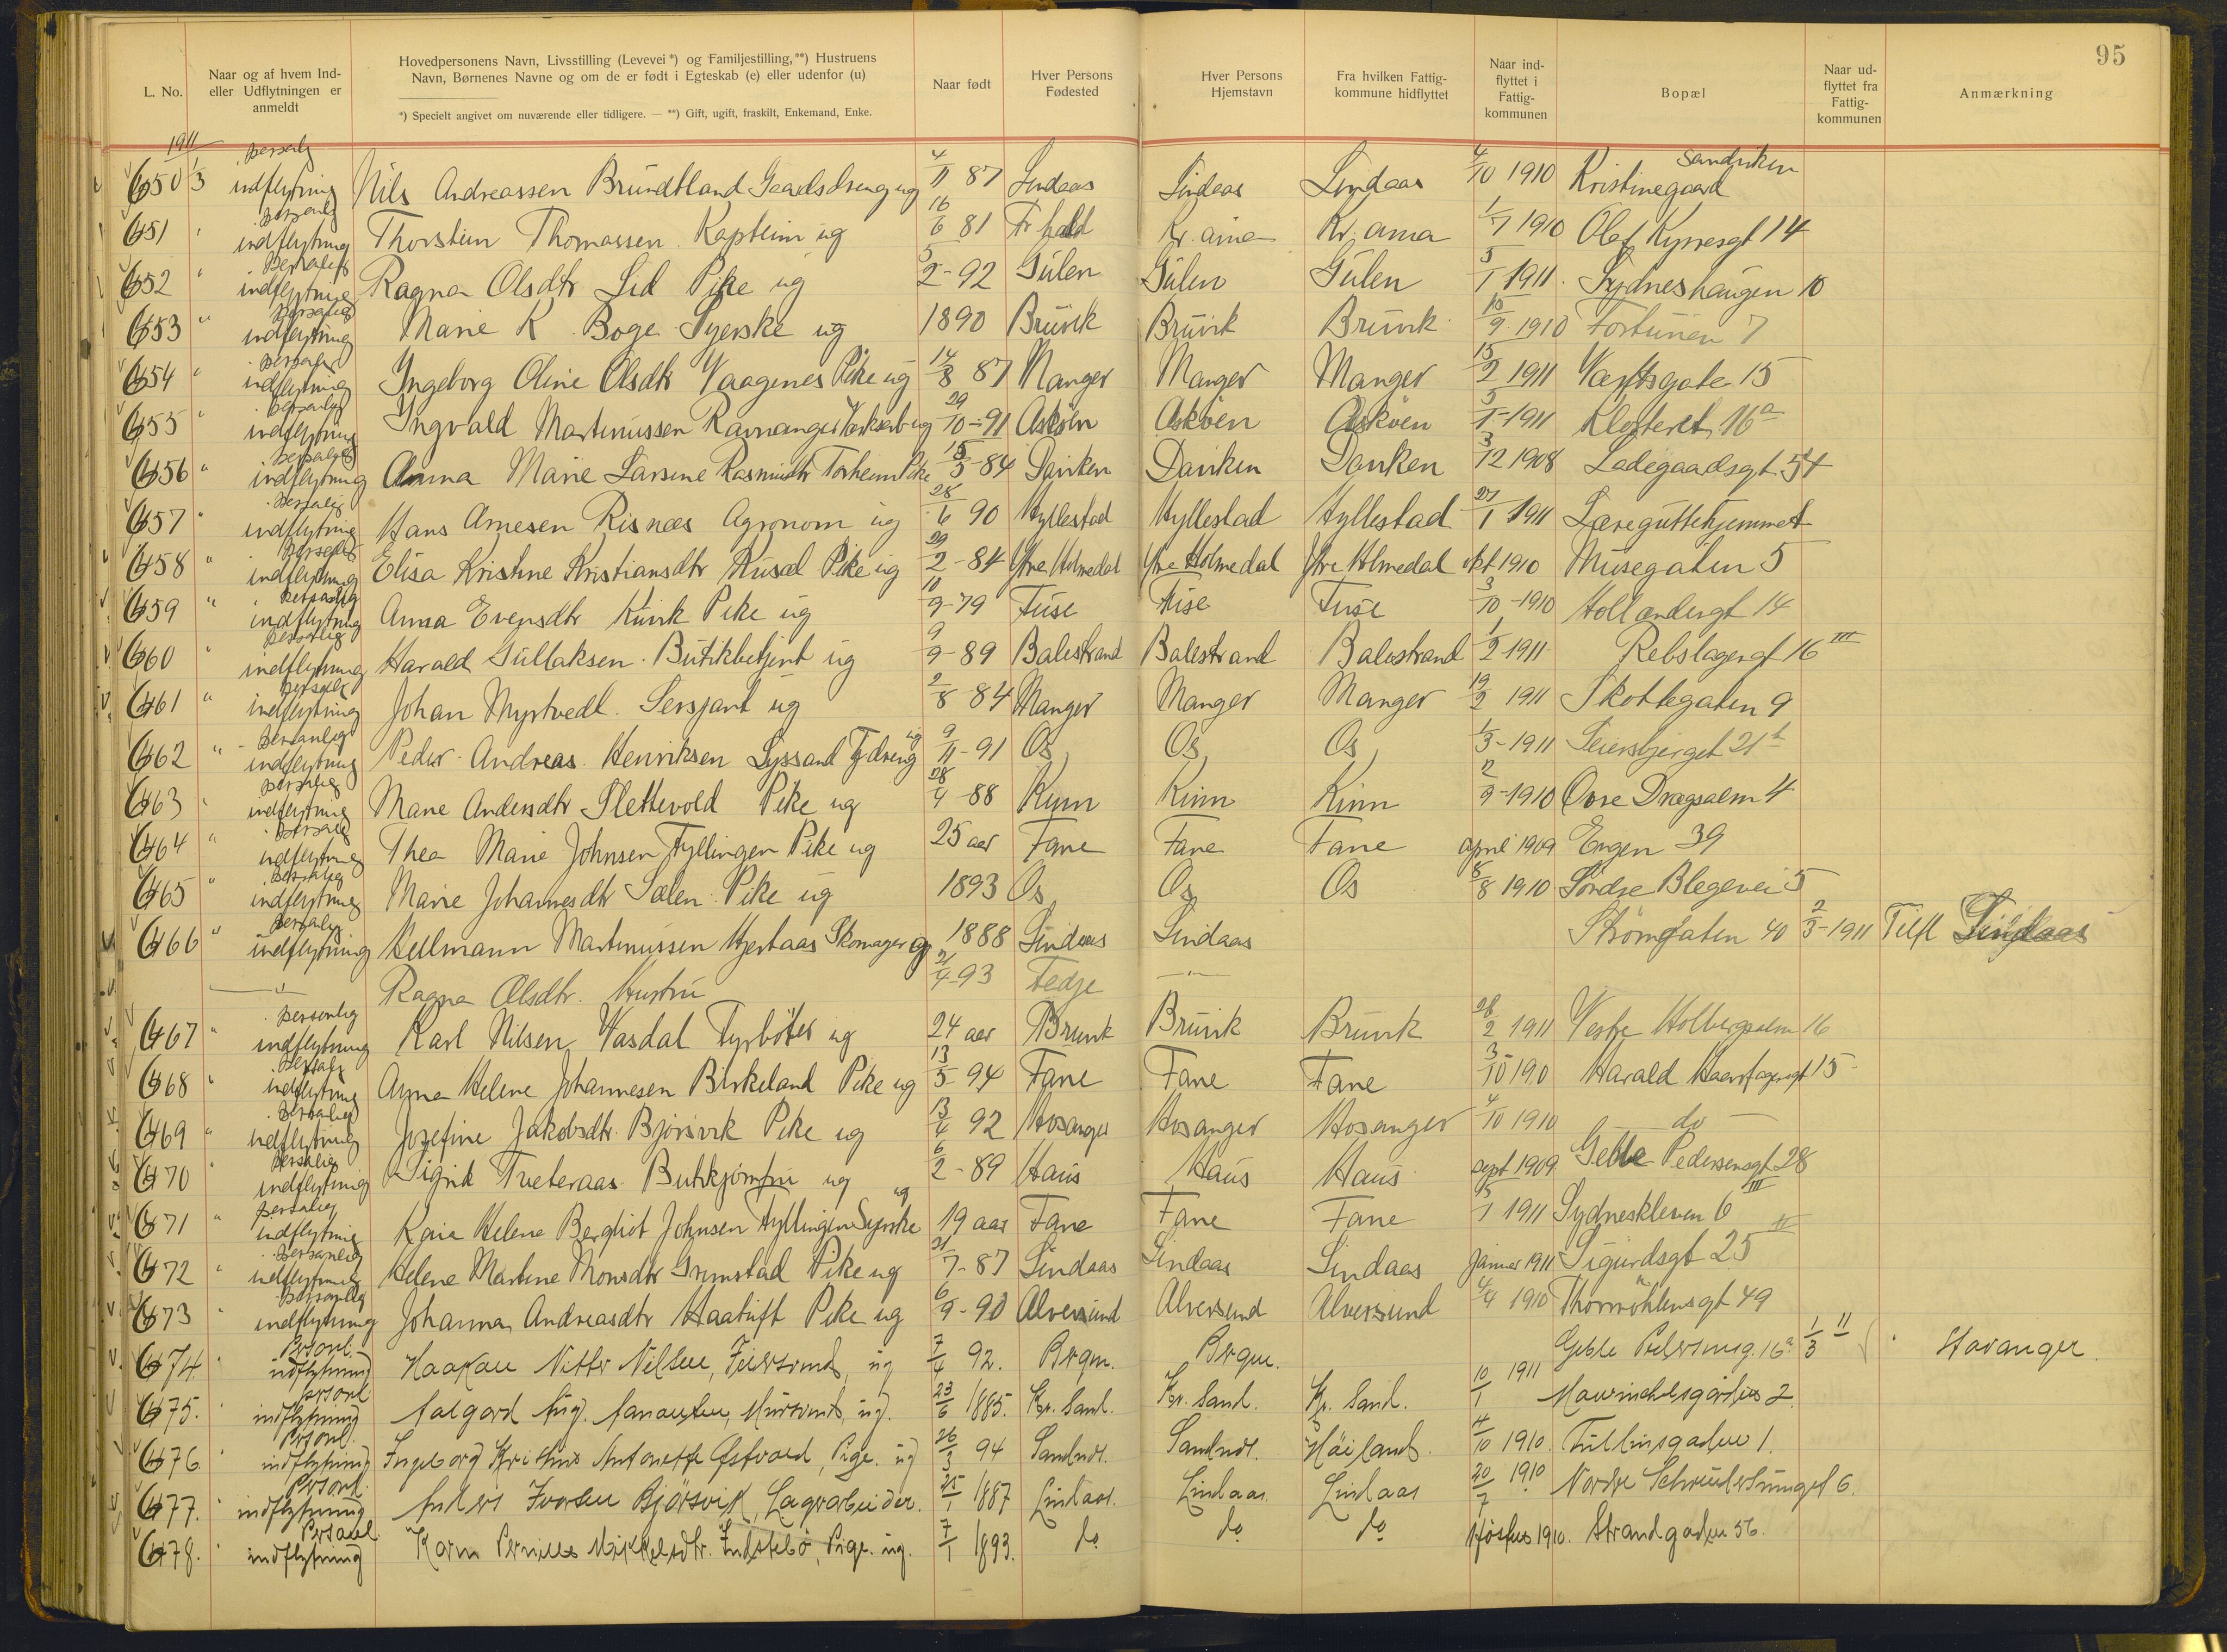 95
L. No.
Naar og af hvem Ind-
eller Udflytningen er
anmeldt
Hovedpersonens Navn, Livsstilling (Levevei*) og Familjestilling,**) Hustruens
Navn, Børnenes Navne og om de er født i Egteskab (e) eller udenfor (u)
*) Specielt angivet om nuværende eller tidligere. — **) Gift, ugift, fraskilt, Enkemand, Enke.
Naar født
Hver Persons
Fødested
Hver Persons
Hjemstavn
Fra hvilken Fattig-
kommune hidflyttet
Naar ind-
flyttet i
Fattig-
kommunen
Bopæl
Naar ud-
flyttet fra
Fattig-
kommunen
Anmærkning
1911
650 1/3 personlig indflytning Nils Andreassen Brundtland Gaardsdreng ug 4/11 87 Lindaas Lindaas Lindaas 4/10 1910 Kristinegaard Sandviken
651 " personlig indflytning Thorstein Thomassen Kaptein ug 16/6 81 Fr.hald Kr.ania Kr.ania 1/7 1910 Olaf Kyrresgt 14
652 " personlig indflytning Ragna Olsdtr Lid Pike ug 5/2-92 Gulen Gulen Gulen 5/1 1911 Sydneshaugen 10
653 " personlig indflytning Marie K Boge Syerske ug 1890 Bruvik Bruvik Bruvik 15/9 1910 Fortunen 7
654 " personlig indflytning Ingeborg Oline Olsdtr Vaagenes Pike ug 14/8 87 Manger Manger Manger 15/2 1911 Værftsgate 15
655 " personlig indflytning Ingvald Martinussen Ravnanger ug 29/10-91 Askøen Askøen Askøen 5/1-1911 Klosteret 16a
656 " personlig indflytning Anna Marie Larsine Rasmusdtr Torheim Pike 15/3-84 Daviken Daviken Daviken 3/12 1908 Ladegaardsgt 54
657 " personlig indflytning Hans Arnesen Risnæs Agronom ug 28/6 90 Hyllestad Hyllestad Hyllestad 27/1 1911 Læreguttehjemmet
658 " personlig indflytning Elisa Kristine Kristiansdtr Pike ug 29/2-84 Ytre Holmedal Ytre Holmedal Ytre Holmedal okt 1910 Musegaten 5
659 " personlig indflytning Anna Evensdtr Pike ug 10/9-79 Fuse Fuse Fuse 3/10-1910 Hollændergt 14
660 " personlig indflytning Harald Gullaksen Butikbetjent ug 9/9-89 Balestrand Balestrand Balestrand 1/2-1911 Rebslagergt 16 III
661 " personlig indflytning Johan Myrtvedt Sersjant ug 2/8 84 Manger Manger Manger 19/2 1911 Skottegaten 9
662 " personlig indflytning Peder Andreas Henriksen Lyssand ug 9/11-91 Os Os Os 1/3-1911 Seiersbjerget 21b
663 " personlig indflytning Marie Andersdtr Slettevold Pike ug 28/4-88 Kinn Kinn Kinn 2/9-1910 Øvre Dragsalm 4
664 " personlig indflytning Thea Marie Johnsen Fyllingen Pike ug 25 aar Fane Fane Fane april 1909 Engen 39
665 " personlig indflytning Marie Johannesdtr Sælen Pike ug 1893 Os Os Os 8/8 1910 Søndre Blegevei 5
666 " personlig indflytning Hellmann Martinussen Hjertaas Skomager g 1888 Lindaas Lindaas Strømgaten 40 2/3-1911 Tilfl Lindaas
" Ragna Olsdtr. Hustru 21/4-93 Fedje "
667 " personlig indflytning Karl Nilsen Vasdal Fyrbøter ug 24 aar Bruvik Bruvik Bruvik 28/2 1911 Vestre Holbergsalm 16
668 " personlig indflytning Anna Helene Johannesen Birkeland Pike ug 13/5 94 Fane Fane Fane 3/10 1910 Harald Haarfagersgt 15
669 " personlig indflytning Josefine Jakobsdtr Bjørsvik Pike ug 13/4 92 Hosanger Hosanger Hosanger 4/10 1910 do
670 " personlig indflytning Sigrid Træteraas Butikjomfru ug 6/2-89 Haus Haus Haus sept 1909 Geble Pedersensgt 28
671 " personlig indflytning Kaia Helene Bergliot Johnsen Fyllingen Syerske ug 19 aar Fane Fane Fane 15/1 1911 Sydneskleven 6 III
672 " personlig indflytning Helene Martine Monsdtr Grimstad Pike ug 21/7-87 Lindaas Lindaas Lindaas Januar 1911 Sigurdsgt 25 II
673 " personlig indflytning Johanna Andreasdtr Haatuft Pike ug 6/9-90 Alversund Alversund Alversund 4/9 1910 Thormøhlensgt 49
674 " Personl. indflytning Haakon Nitter Nilsen, ug 7/4 92. Bergen. Bergen. Geble Pedersensg. 16a 1/3 11 Stavanger.
675. " personl. indflytning Murersvend, ug. 23/6 1885. Kr. sand. Kr. sand. Kr. sand. 10/1 1911 2.
676 " Personl. indflytning Ingeborg Kristine Antonette Pige. ug 26/3 94 Sandnes. Sandnes. Høiland. 4/10 1910. Tullinsgaden 1.
677. " Personl. indflytning Anders Iversen Bjørsvik, Lagerarbeider. 25/1 1887 Lindaas. Lindaas. Lindaas 20/7 1910 Nordre 6.
678. " Personl. indflytning Karen Pernille Mikkelsdtr. Indrebø, Pige. ug. 7/1 1893. do do do Høsten 1910. Strandgaden 56.